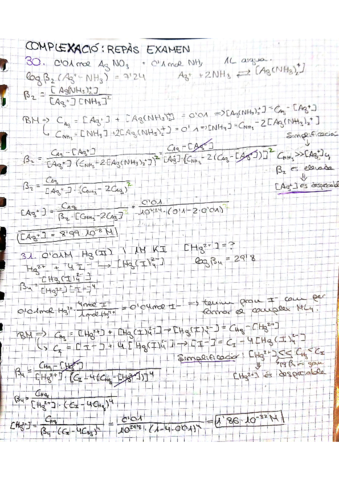 COMPLEXACIÓ: REPÀS EXAMEN
30. 0'01 mol Ag NO3 + 0'1 mol NH3 1L aigua
log β2 (Ag+-NH3) = 7'24 Ag+ + 2NH3 ⇄ [Ag(NH3)2+]
β2 = [Ag(NH3)2+] / [Ag+][NH3]²
BM → CAg = [Ag+] + [Ag(NH3)2+] = 0'01 ⇒ [Ag(NH3)2+] = CAg - [Ag+]
CNH3 = [NH3] + 2[Ag(NH3)2+] = 0'1 ⇒ [NH3] = CNH3 - 2[Ag(NH3)2+]
Simplificació
β2 = CAg - [Ag+] / [Ag+] (CNH3 - 2[Ag(NH3)2+])² = CAg - [Ag+] / [Ag+] (CNH3 - 2(CAg - [Ag+]))²
CNH3 >> [Ag+],
β2 és elevada
↓
[Ag+] és despreciable
β2 = CAg / [Ag+] · (CNH3 - 2CAg)²
[Ag+] = CAg / β2 · (CNH3 - 2CAg)² = 0'01 / 10^7'24 · (0'1 - 2·0'01)²
[Ag+] = 8'99·10^-8 M
31. 0'01M Hg(II) i 1M KI [Hg2+] = ?
Hg2+ + 4I- → [Hg(I)4 2-] log β4 = 29'8
β4 = [Hg(I)4 2-] / [Hg2+]·[I-]^4
0'01 mol Hg2+ · 4 mol I- / 1 mol Hg2+ = 0'04 mol I- → tenim prou I- com per formar el complex ML4.
BM → CHg = [Hg2+] + [Hg(I)4 2-] → [Hg(I)4 2-] = CHg - [Hg2+]
CI = [I-] + 4[Hg(I)4 2-] → [I-] = CI - 4[Hg(I)4 2-]
Simplificació: [Hg2+] << CHg < CI
[Hg2+] és despreciable
β4 = CHg - [Hg2+] / [Hg2+] · [CI - 4(CHg - [Hg2+])]^4
β4 = CHg / [Hg2+] · (CI - 4CHg)^4
[Hg2+] = CHg / β4 · (CI - 4CHg)^4 = 0'01 / 10^29'8 · (1 - 4·0'01)^4 = 1'86·10^-32 M